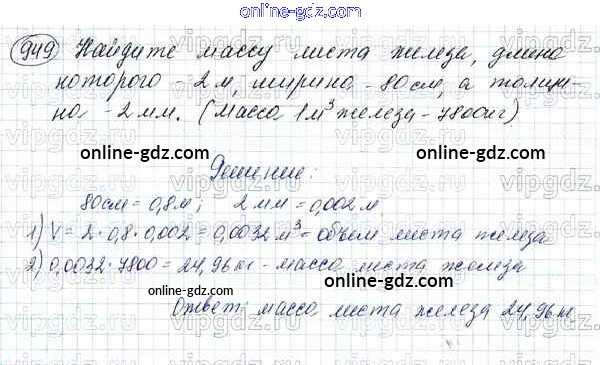 online-gdz.com
949) Найдите массу листа железа, длина
которого - 2 м, ширина - 80 см, а толщи-
на - 2 мм. (Масса 1 м³ железа - 7800 кг)
online-gdz.com online-gdz.com
Решение:
80 см = 0,8 м; 2 мм = 0,002 м
1) V = 2 · 0,8 · 0,002 = 0,0032 м³ = объем листа железа
2) 0,0032 · 7800 = 24,96 кг - масса листа железа
online-gdz.com online-gdz.com
Ответ: масса листа железа 24,96 кг
online-gdz.com